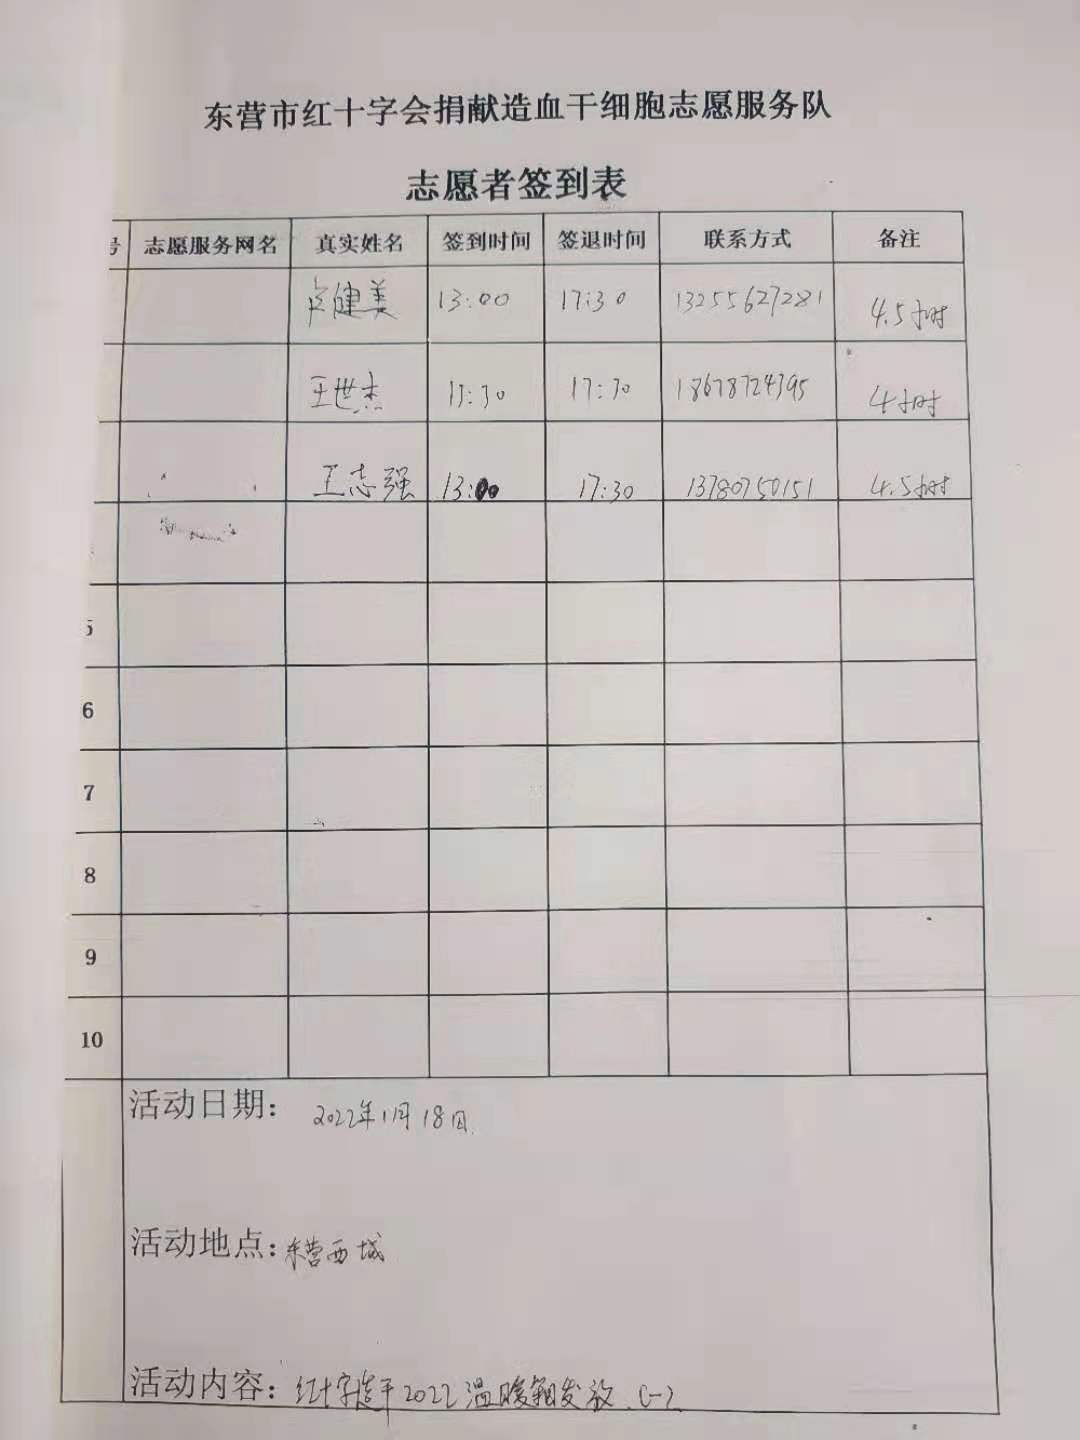 东营市红十字会捐献造血干细胞志愿服务队
志愿者签到表
号 志愿服务网名 真实姓名 签到时间 签退时间 联系方式 备注
健美 13:00 17:30 13255627281 4.5小时
王世杰 13:30 17:30 18678724395 4小时
王志强 13:00 17:30 13780750151 4.5小时
5
6
7
8
9
10
活动日期: 2022年11月18日
活动地点:东营西城
活动内容:红十字造干2022温暖箱发放(一)